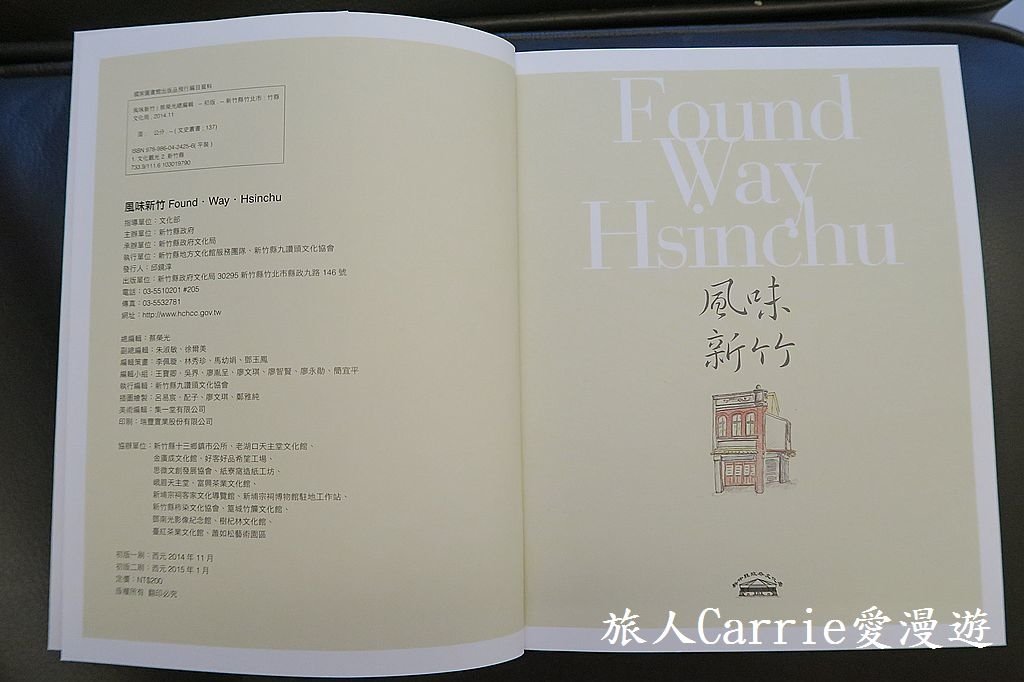 國家圖書館出版品預行編目資料
風味新竹 / 蔡榮光總編輯. -- 初版. -- 新竹縣竹北市 : 竹縣
文化局, 2014.11
面 ; 公分. -- ( 文史叢書 ; 137)
ISBN 978-986-04-2425-6( 平裝 )
1. 文化觀光 2. 新竹縣
733.9/111.6 103019790
風味新竹 Found・Way・Hsinchu
指導單位：文化部
主辦單位：新竹縣政府
承辦單位：新竹縣政府文化局
執行單位：新竹縣地方文化館服務團隊、新竹縣九讚頭文化協會
發行人：邱鏡淳
出版單位：新竹縣政府文化局 30295 新竹縣竹北市縣政九路 146 號
電話：03-5510201 #205
傳真：03-5532781
網址：http://www.hchcc.gov.tw
總編輯：蔡榮光
副總編輯：朱淑敏、徐爾美
編輯策畫：李佩璇、林秀珍、馬幼娟、鄧玉鳳
編輯小組：王寶卿、吳界、廖胤呈、廖文琪、廖智賢、廖永勛、簡宜平
執行編輯：新竹縣九讚頭文化協會
插圖繪製：呂易宸、配子、廖文琪、鄭雅純
美術編輯：集一堂有限公司
印刷：瑞豐實業股份有限公司
協辦單位：新竹縣十三鄉鎮市公所、老湖口天主堂文化館、
金廣成文化館、好客好品希望工場、
思微文創發展協會、紙寮窩造紙工坊、
峨眉天主堂、富興茶業文化館、
新埔宗祠客家文化導覽館、新埔宗祠博物館駐地工作站、
新竹縣柿染文化協會、篁城竹簾文化館、
鄧南光影像紀念館、樹杞林文化館、
臺紅茶業文化館、蕭如松藝術園區
初版一刷：西元 2014 年 11 月
初版二刷：西元 2015 年 1 月
定價：NT$200
版權所有 翻印必究
Found
Way
Hsinchu
風味
新竹
新竹縣政府文化局
旅人Carrie愛漫遊